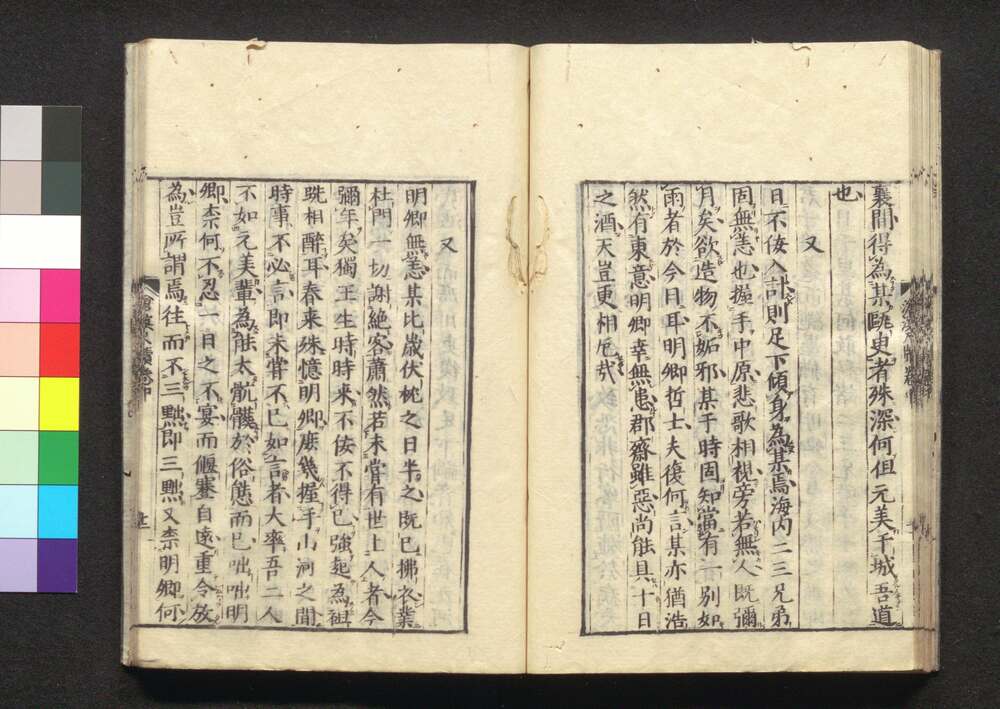 襄間得為某眺史者殊深何但元美干城吾道
也
又
日不佞入計則足下傾身為某焉海内二三兄弟
固無恙也握手中原悲歌相視旁若無人既彌
月矣欲造物不妬邪某于時固知當有一別如
雨者於今日耳明卿哲士夫復何言某亦猶浩
然有東意明卿幸無恙郡齋雖惡尚能具十日
之酒天豈更相厄哉
又
明卿無恙某比歲伏枕之日半之既已拂衣業
杜門一切謝絕客蕭然若未甞有世上人者今
彌年矣獨王生時時來不佞不得已強起為
既相醉耳春來殊憶明卿庶幾握手山河之間
時事不必言即未甞不已如言者大率吾二人
不如元美輩為能太骯髒於俗態而已咄咄明
卿柰何不忍一日之不宴而偃蹇自遠重令放
為豈所謂焉往而不三黜即三黜又柰明卿何